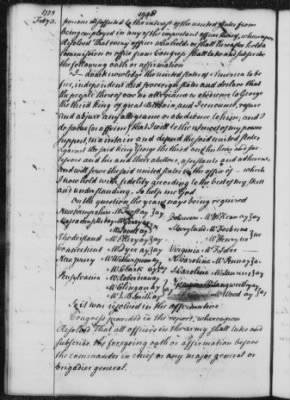 1778
Feby 3.
persons disaffected to the interest of the united states from
being employed in any of the important offices thereof, whereupon
Resolved That every officer who holds or shall hereafter hold a
commission or office from Congress shall take and subscribe
the following oath or affirmation
I do acknowledge the united states of America to be
free, independent and sovereign states and declare that
the people thereof owe no allegiance or obedience to George
the third king of great Britain, and I renounce, refuse
and abjure any allegiance or obedience to him, and I
do swear (or affirm) that I will to the utmost of my power
support, maintain and defend the said united states
against the said king George the third and his heirs and suc
cessors and his and their abettors, assistants and adherents
and will serve the said united states in the office of which
I now hold with fidelity according to the best of my skill
and understanding. So help me God.
On the question the yeas & nays being required
Newhampshire Mr Folsom ay
Massachusetts bay Mr Gerry ay
Mr Lovell ay
Rhode island Mr Ellery ay
Connecticut Mr Dyer ay
New Jersey Mr Witherspoon ay
Mr Clark ay
Pensylvania Mr Roberdeau
Mr Clingan ay
Mr J. B. Smith ay
Delaware Mr McKean ay
Maryland Mr Forbes no
Mr Henry no
Virginia Mr F. L. Lee
N. Carolina Mr Penn ay
S. Carolina Mr Laurens ay
Georgia Mr Langworthy ay
Mr Wood ay
So it was resolved in the affirmative
Congress proceeded in the report, whereupon
Resolved That all officers in the army shall take and
subscribe the foregoing oath or affirmation before
the commander in chief or any major general or
brigadier general.